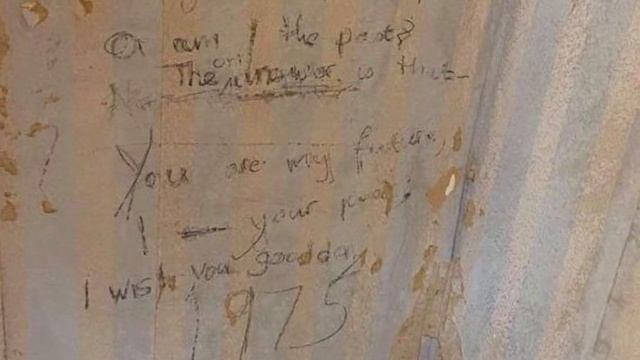 Or am I the past?
The only answer is that–
You are my future,
I — your past;
I wish you good day,
1975